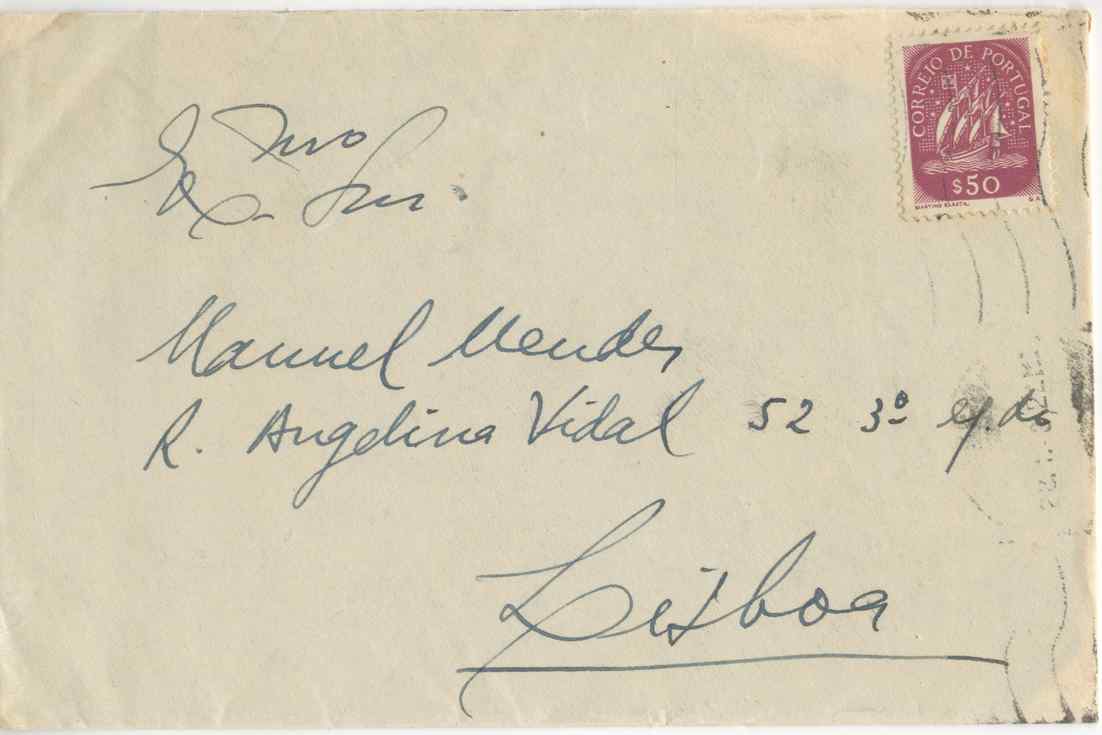 CORREIO DE PORTUGAL
$50
MARTINS BARATA
Exmo Snr.
Manuel Mendes
R. Angelina Vidal 52 3º esq.do
Lisboa